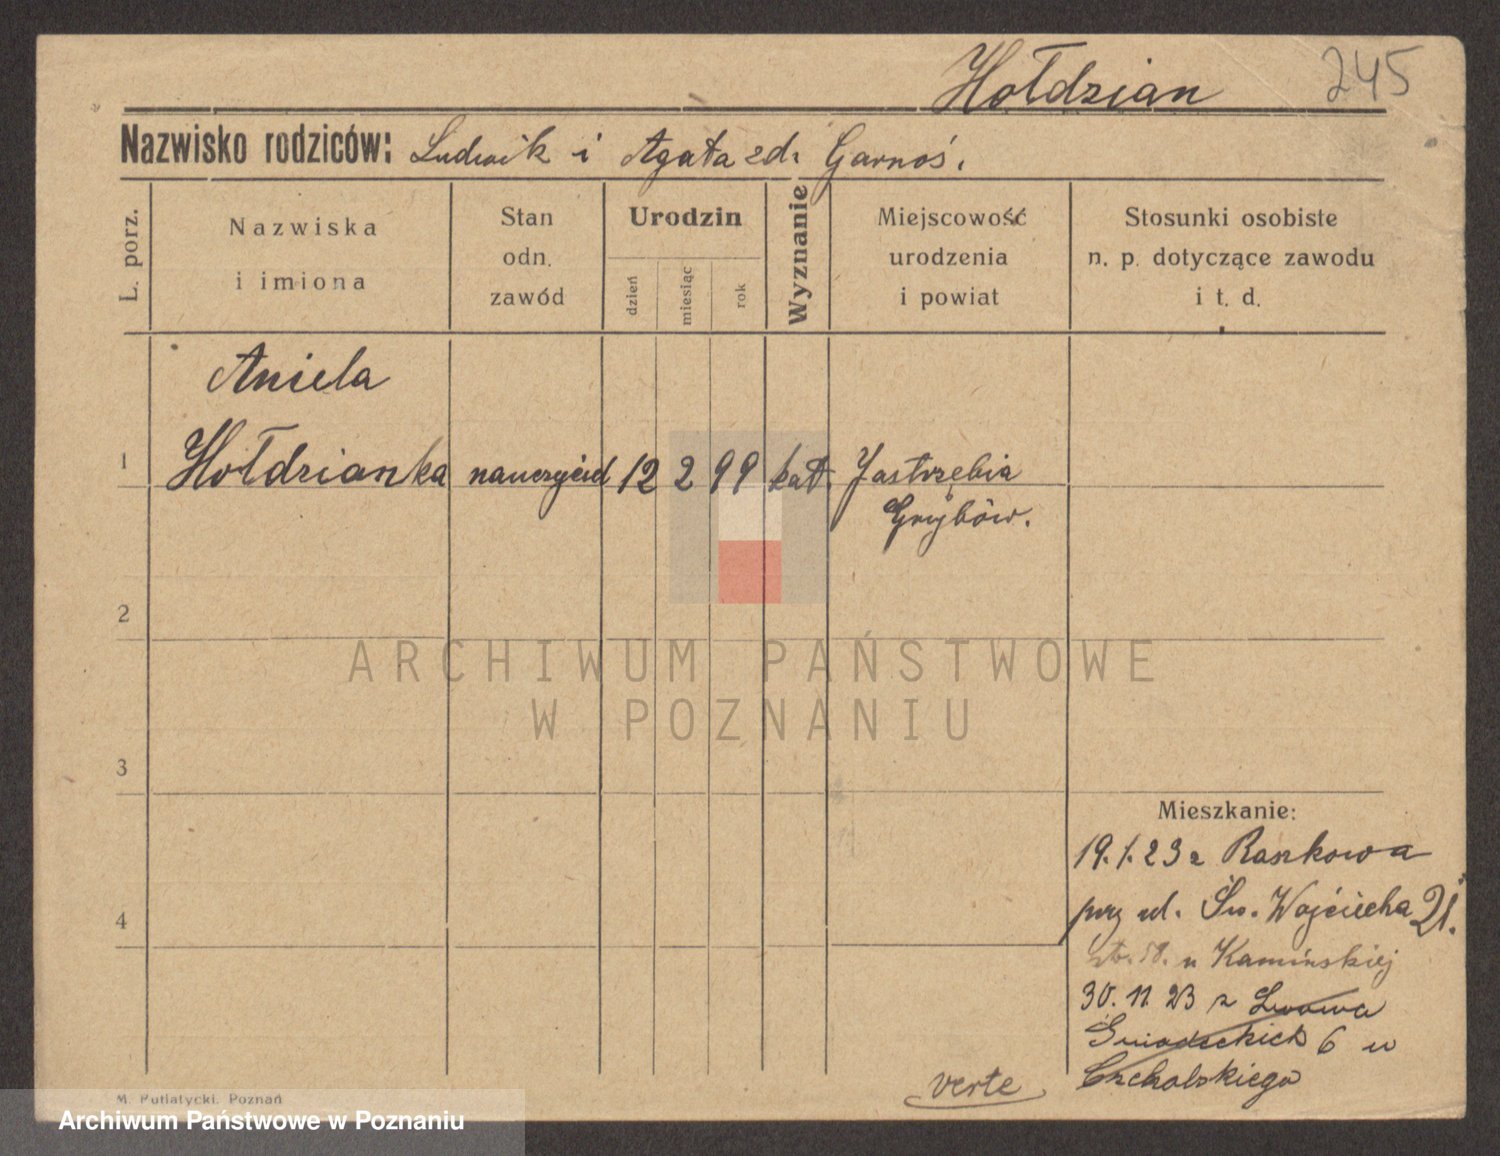 Hołdzian 245
Nazwisko rodziców: Ludwik i Agata zd. Garnoś.
L. porz.
Nazwiska
i imiona
Stan
odn.
zawód
Urodzin
dzień
miesiąc
rok
Wyznanie
Miejscowość
urodzenia
i powiat
Stosunki osobiste
n. p. dotyczące zawodu
i t. d.
Aniela
1 Hołdzianka nauczyciel 12 2 99 kat. Jastrzębia
Grybów.
2
ARCHIWUM PAŃSTWOWE
W POZNANIU
3
Mieszkanie:
19.1.23 z Raszkowa
4
przy ul. Św. Wojciecha 21.
u Kamińskiej
30.11.23 z Lwowa
Śniadeckich 6 u
Czchalskiego
verte
M. Putiatycki, Poznań
Archiwum Państwowe w Poznaniu